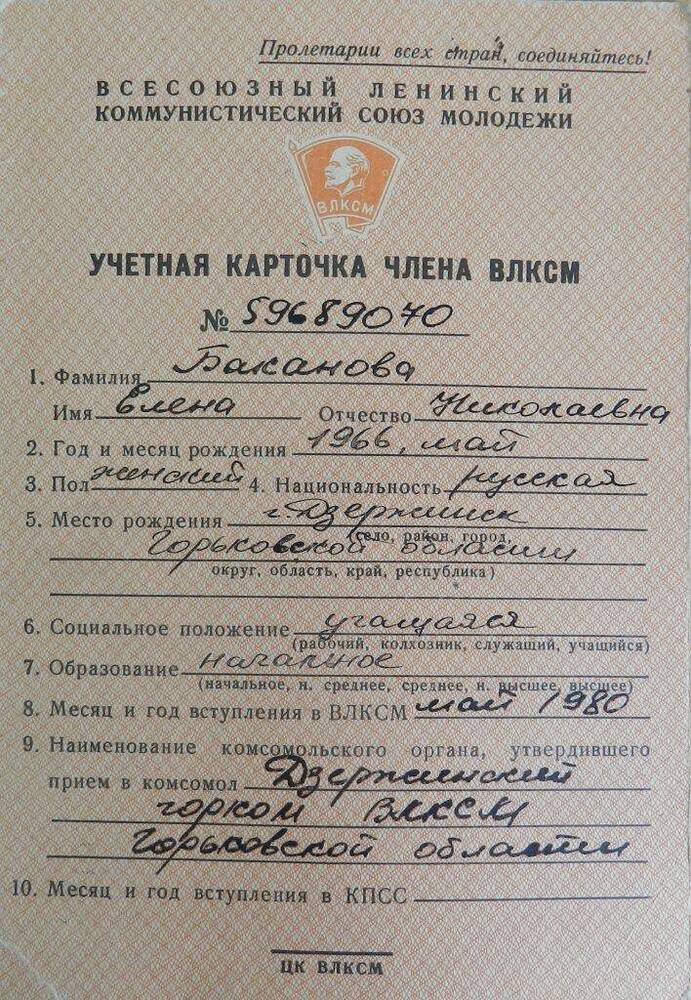 Пролетарии всех стран, соединяйтесь!
ВСЕСОЮЗНЫЙ ЛЕНИНСКИЙ
КОММУНИСТИЧЕСКИЙ СОЮЗ МОЛОДЕЖИ
ВЛКСМ
УЧЕТНАЯ КАРТОЧКА ЧЛЕНА ВЛКСМ
№ 59689070
1. Фамилия Баканова
Имя Елена Отчество Николаевна
2. Год и месяц рождения 1966, май
3. Пол женский 4. Национальность русская
5. Место рождения г. Дзержинск
(село, район, город,
Горьковской области
округ, область, край, республика)
6. Социальное положение учащаяся
(рабочий, колхозник, служащий, учащийся)
7. Образование начальное
(начальное, н. среднее, среднее, н. высшее, высшее)
8. Месяц и год вступления в ВЛКСМ май 1980
9. Наименование комсомольского органа, утвердившего
прием в комсомол Дзержинский
горком ВЛКСМ
Горьковской области
10. Месяц и год вступления в КПСС
ЦК ВЛКСМ